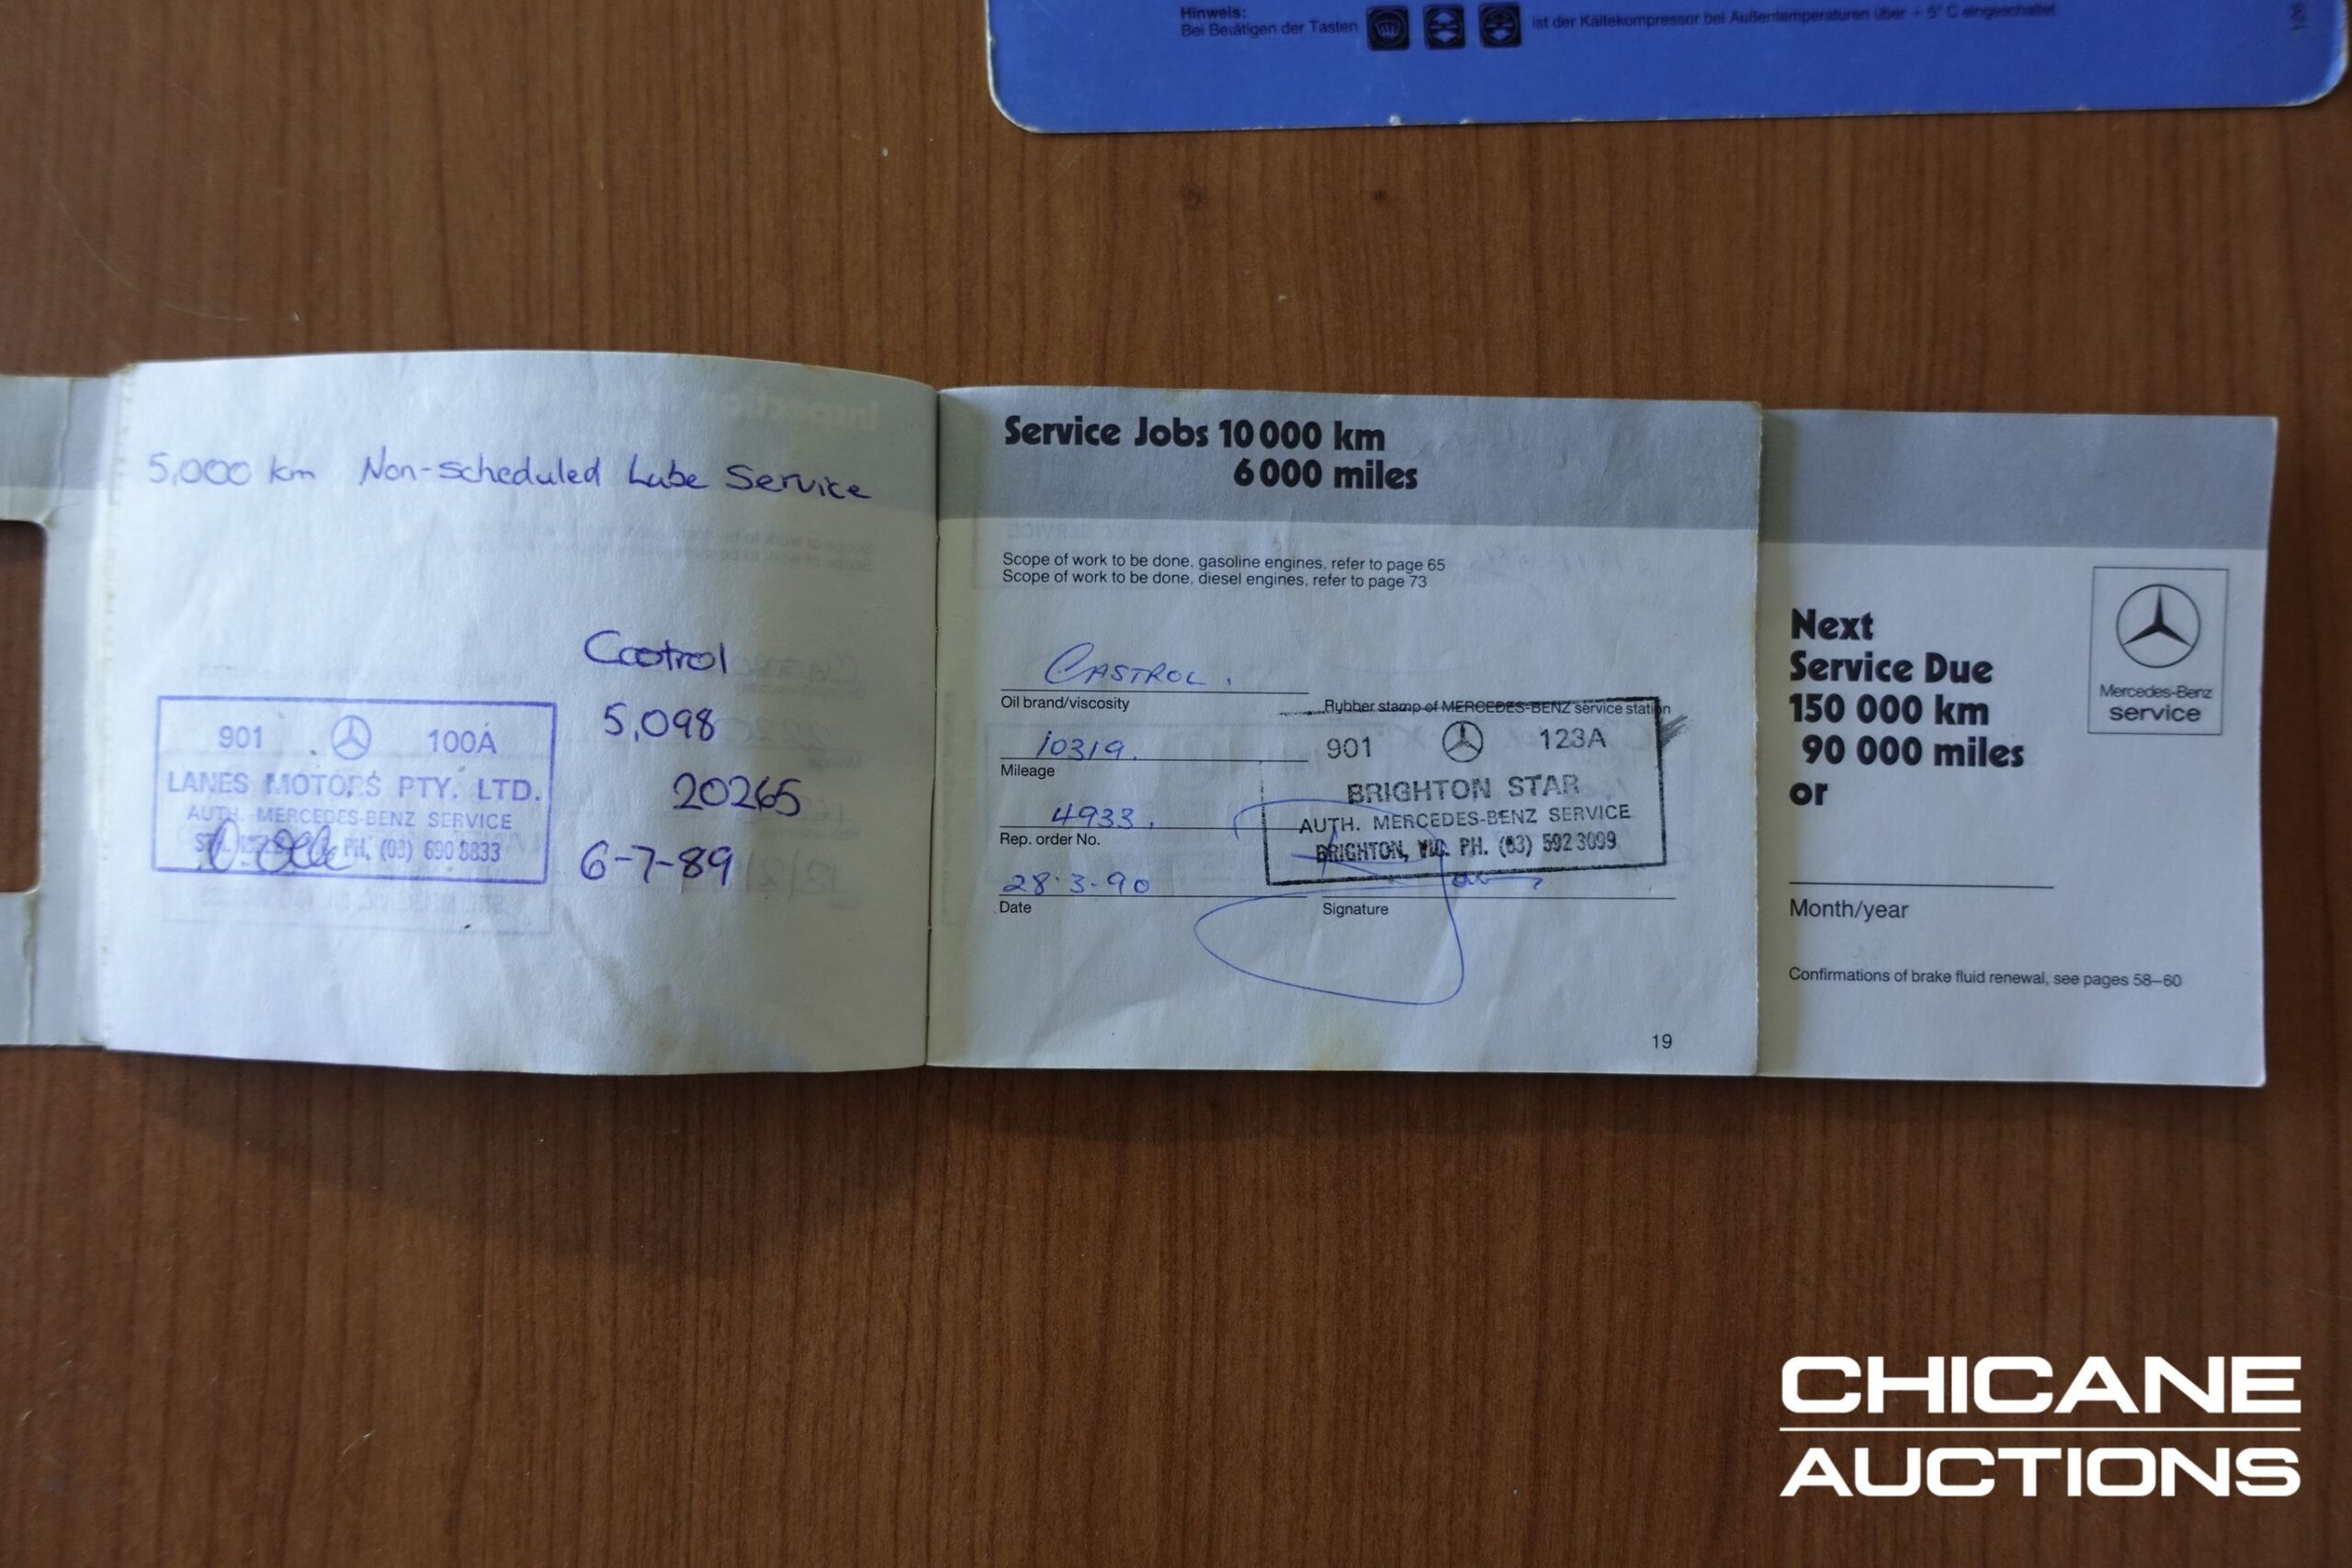 Hinweis:
Bei Betätigen der Tasten ist der Kältekompressor bei Außentemperaturen über + 5° C eingeschaltet.
5,000 km Non-scheduled Lube Service
Castrol
5,098
20265
6-7-89
901 100A
LANES MOTORS PTY. LTD.
AUTH. MERCEDES-BENZ SERVICE
PH. (03) 690 8833
Service Jobs 10 000 km
6 000 miles
Scope of work to be done, gasoline engines, refer to page 65
Scope of work to be done, diesel engines, refer to page 73
CASTROL.
Oil brand/viscosity
Rubber stamp of MERCEDES-BENZ service station
10319.
Mileage
4933.
Rep. order No.
28.3.90
Date
901 123A
BRIGHTON STAR
AUTH. MERCEDES-BENZ SERVICE
BRIGHTON, VIC. PH. (03) 592 3099
Signature
19
Next
Service Due
150 000 km
90 000 miles
or
Mercedes-Benz
service
Month/year
Confirmations of brake fluid renewal, see pages 58–60
CHICANE
AUCTIONS